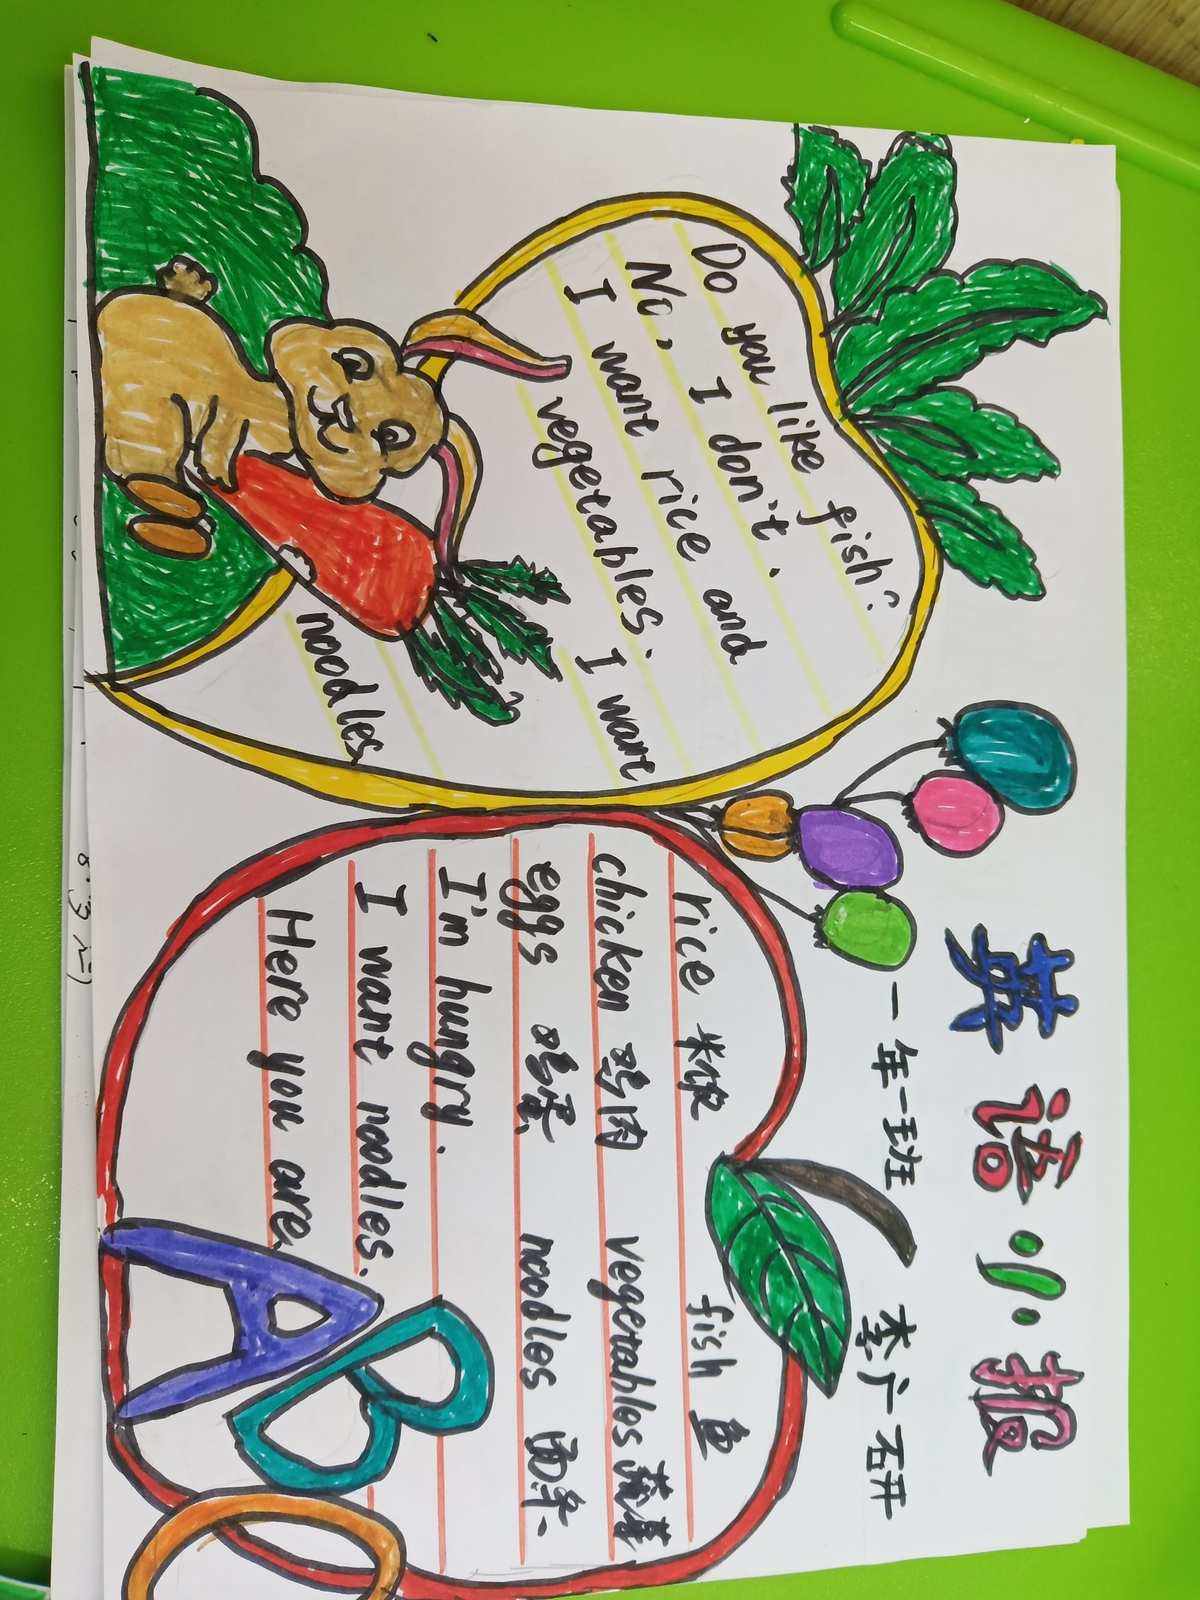 英语小报
一年一班 李广研
Do you like fish?
No, I don't.
I want rice and
vegetables. I want
noodles
rice 米饭 fish 鱼
chicken 鸡肉 vegetables 蔬菜
eggs 鸡蛋 noodles 面条
I'm hungry.
I want noodles.
Here you are
A
B